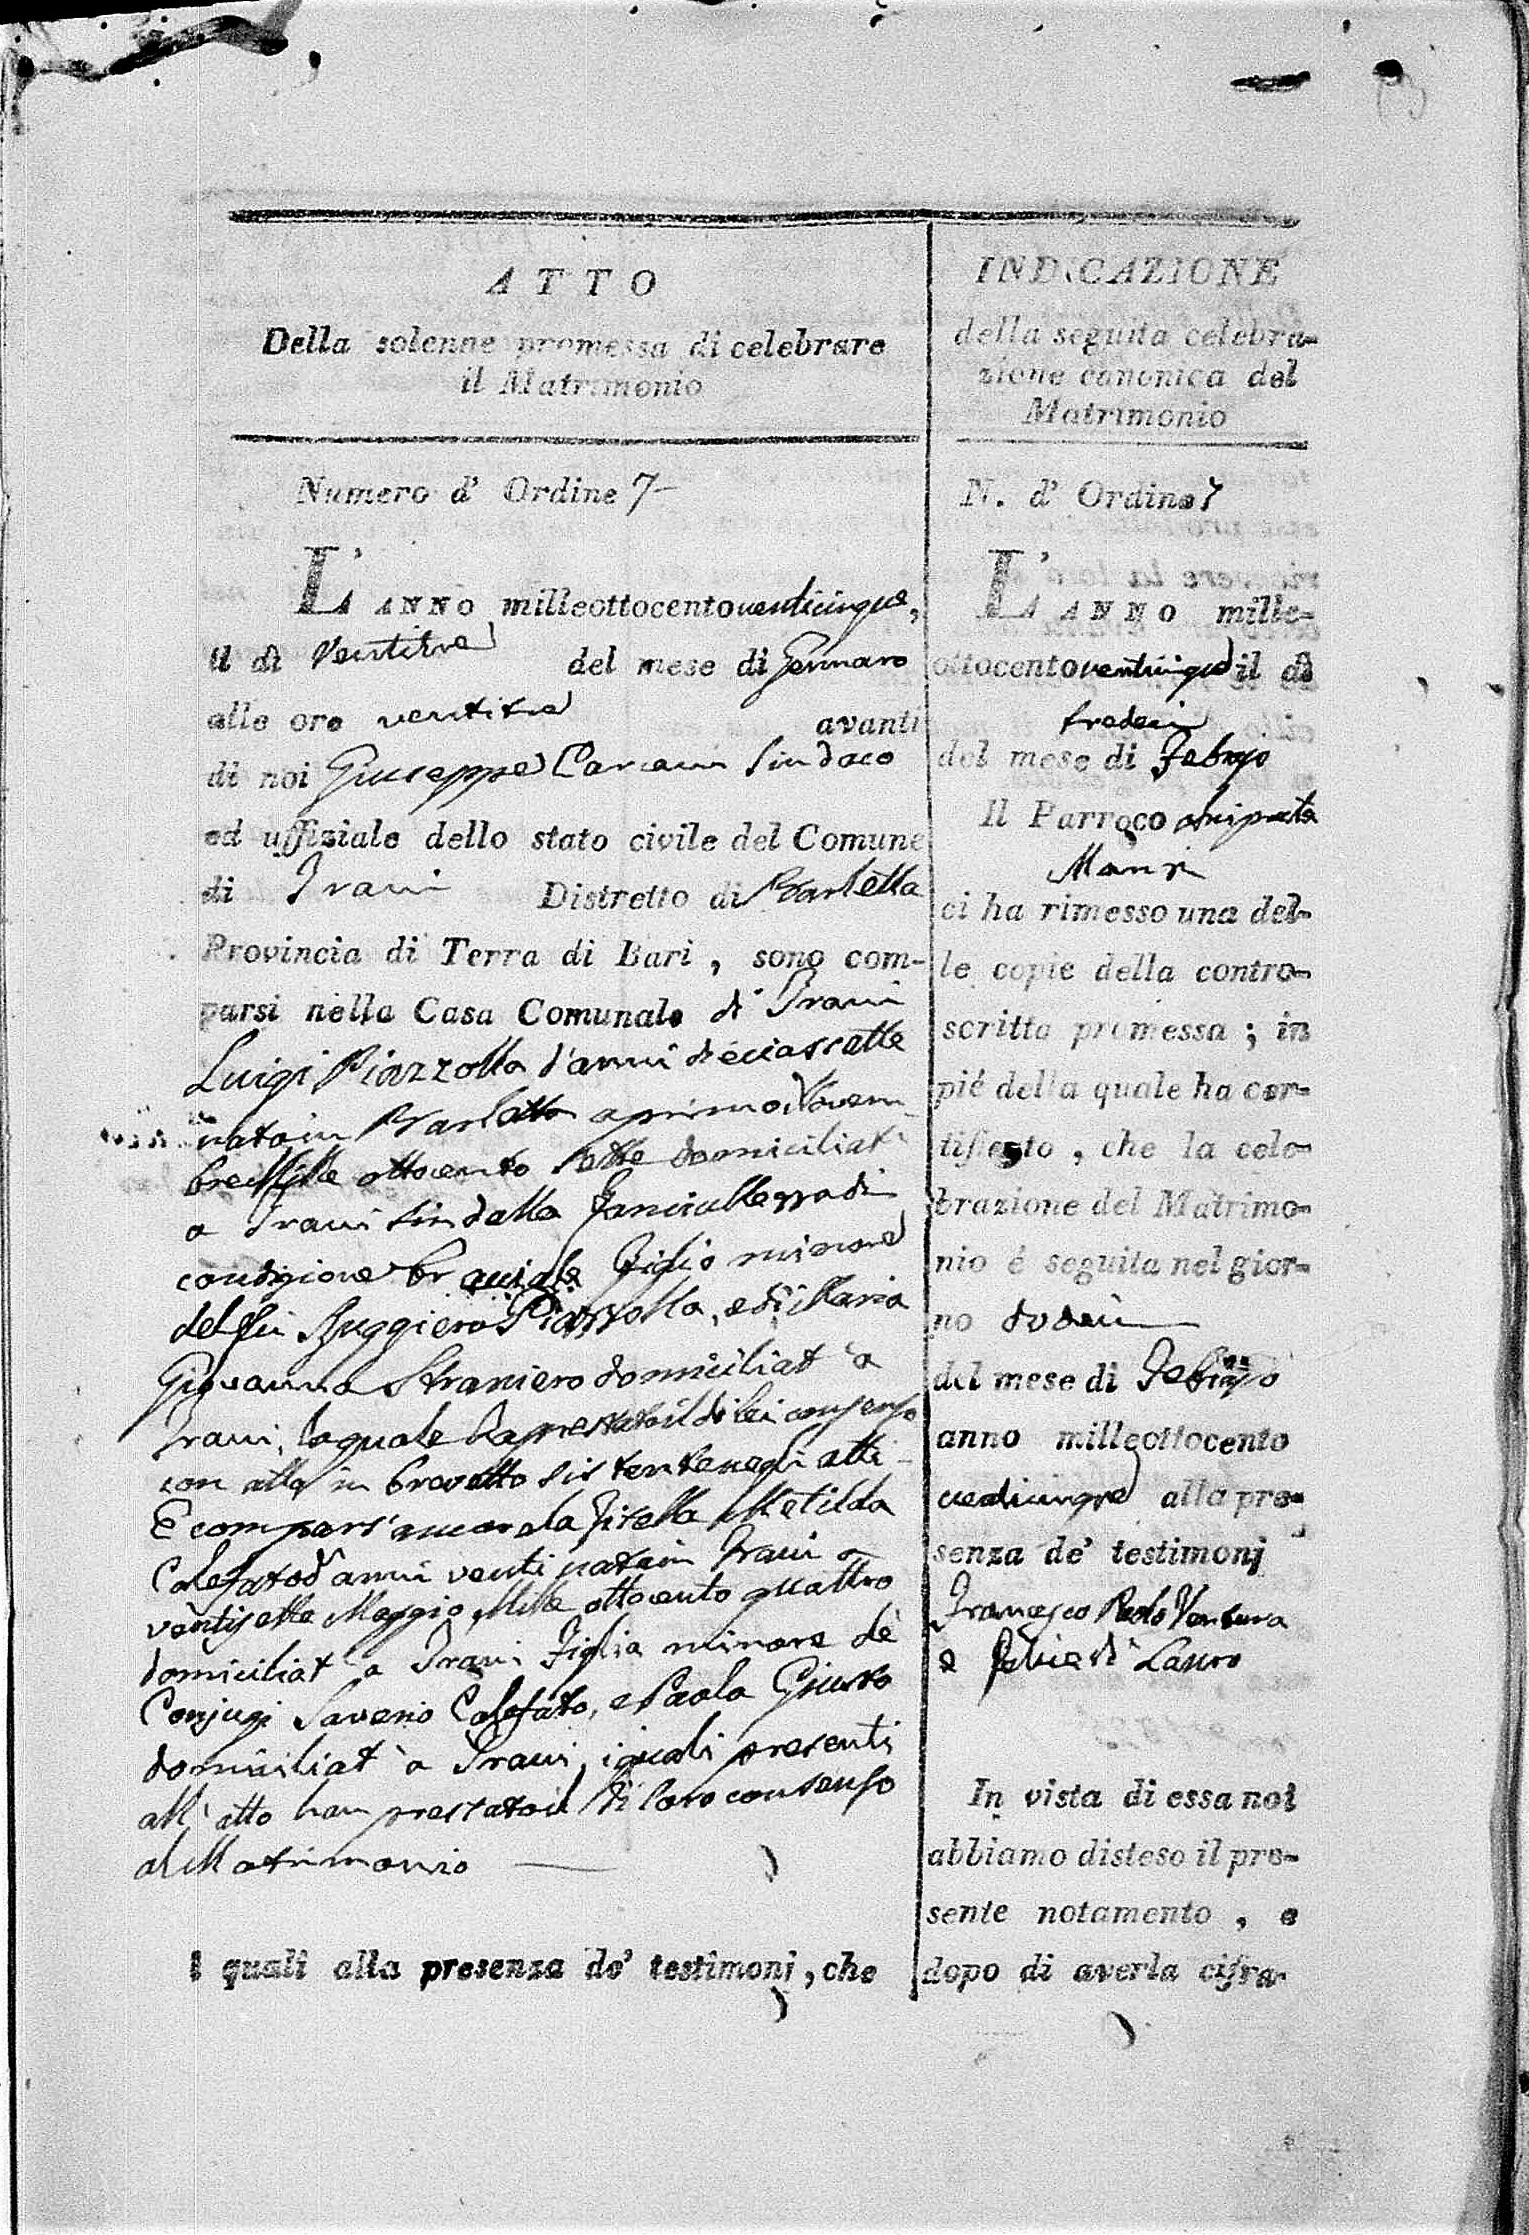 ATTO
Della solenne promessa di celebrare
il Matrimonio
Numero d' Ordine 7
L'ANNO milleottocentoventicinque,
il dì Ventitre del mese di Gennaro
alle ore ventitre avanti
di noi Giuseppe Carcani Sindaco
ed uffiziale dello stato civile del Comune
di Trani Distretto di Barletta
Provincia di Terra di Bari, sono com-
parsi nella Casa Comunale di Trani
Luigi Piazzolla d'anni dieciassette
nato in Barletta a primo Novem-
bre Mille ottocento sette domiciliat
a Trani sin dalla fanciullezza di
condizione braciale Figlio minore
del fu Ruggiero Piazzolla, e di Maria
Giovanna Straniero domiciliat a
Trani, la quale ha prestato il di lei consenso
con atto in brevetto sistente negli atti
E comparsa ancor la Zitella Metilda
Calefato d'anni venti nata in Trani a
ventisette Maggio Mille ottocento quattro
domiciliat a Trani Figlia minore de'
Conjugi Saverio Calefato, e Paola Giusto
domiciliat a Trani, i quali presenti
all' atto han prestato il di loro consenso
al Matrimonio
I quali alla presenza de' testimonj, che
INDICAZIONE
della seguita celebra-
zione canonica del
Matrimonio
N. d' Ordine 7
L'ANNO mille-
ottocentoventicinque il dì
tredeci
del mese di Febrajo
Il Parroco Arciprete
Manzi
ci ha rimesso una del-
le copie della contro-
scritta promessa; in
piè della quale ha cer-
tificato, che la cele-
brazione del Matrimo-
nio è seguita nel gior-
no dodeci
del mese di Febrajo
anno milleottocento
venticinque alla pre-
senza de' testimonj
Francesco Paolo Ventura
e Felice di Lauro
In vista di essa noi
abbiamo disteso il pre-
sente notamento, e
dopo di averla cifra-